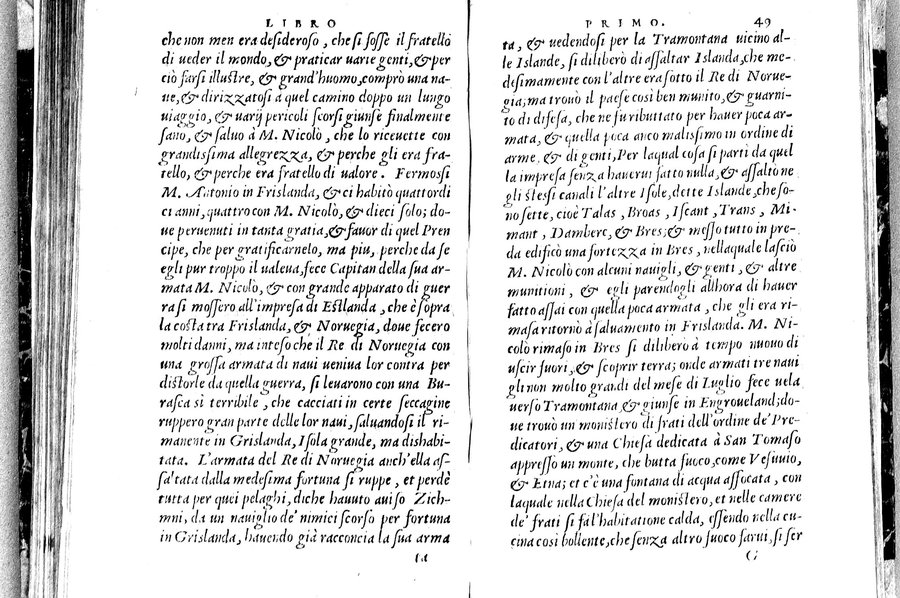 LIBRO
che non men era desideroso, che si fosse il fratello
di ueder il mondo, & praticar uarie genti, & per
ciò farsi illustre, & grand'huomo, comprò una na-
ue, & dirizzatosi a quel camino doppo un lungo
uiaggio, & uarij pericoli scorsi giunse finalmente
sano, & saluo à M. Nicolò, che lo riceuette con
grandissima allegrezza, & perche gli era fra-
tello, & perche era fratello di ualore. Fermosi
M. Antonio in Frislanda, & ci habitò quattordi
ci anni, quattro con M. Nicolò, & dieci solo; do-
ue peruenuti in tanta gratia, & fauor di quel Pren
cipe, che per gratificarnelo, ma piu, perche da se
egli pur troppo il ualeua, fece Capitan della sua ar-
mata M. Nicolò, & con grande apparato di guer
ra si mossero all'impresa di Estlanda, che è sopra
la costa tra Frislanda, & Noruegia, doue fecero
molti danni, ma inteso che il Re di Noruegia con
una grossa armata di naui ueniua lor contra per
distorle da quella guerra, si leuarono con una Bu-
rasca sì terribile, che cacciati in certe seccagine
ruppero gran parte delle lor naui, saluandosi il ri-
manente in Grislanda, Isola grande, ma dishabi-
tata. L'armata del Re di Noruegia anch'ella as-
sa'tata dalla medesima fortuna si ruppe, et perdè
tutta per quei pelaghi, di che hauuto auiso Zich-
mni, da un nauiglio de' nimici scorso per fortuna
in Grislanda, hauendo già racconcia la sua arma
ta
PRIMO. 49
ta, & uedendosi per la Tramontana uicino al-
le Islande, si diliberò di assaltar Islanda, che me-
desimamente con l'altre era sotto il Re di Norue-
gia; ma trouò il paese così ben munito, & guarni-
to di difesa, che ne fu ributtato per hauer poca ar-
mata, & quella poca anco malissimo in ordine di
arme, & di genti, Per laqual cosa si parti da quel
la impresa senza hauerui fatto nulla, & assaltò ne
gli stessi canali l'altre Isole, dette Islande, che so-
no sette, cioè Talas, Broas, Iscant, Trans, Mi-
mant, Damberc, & Bres; & messo tutto in pre-
da edificò una fortezza in Bres, nellaquale lasciò
M. Nicolò con alcuni nauigli, & genti, & altre
munitioni, & egli parendogli allhora di hauer
fatto assai con quella poca armata, che gli era ri-
masa ritornò à saluamento in Frislanda. M. Ni-
colò rimaso in Bres si diliberò à tempo nuouo di
uscir fuori, & scoprir terra; onde armati tre naui
gli non molto grandi del mese di Luglio fece uela
uerso Tramontana, & giunse in Engroueland; do-
ue trouò un monistero di frati dell'ordine de' Pre-
dicatori, & una Chiesa dedicata à San Tomaso
appresso un monte, che butta fuoco, come Vesuuio,
& Etna; et c'è una fontana di acqua affocata, con
laquale nella Chiesa del monistero, et nelle camere
de' frati si fà l'habitatione calda, essendo nella cu-
cina così bollente, che senza altro fuoco farui, si ser
G